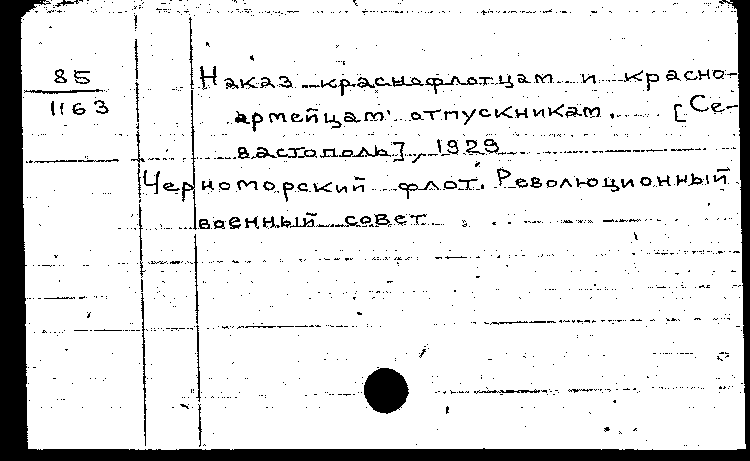 85
1163
Наказ краснофлотцам и красно-
армейцам отпускникам. [Се-
вастополь], 1929
Черноморский флот. Революционный
военный совет